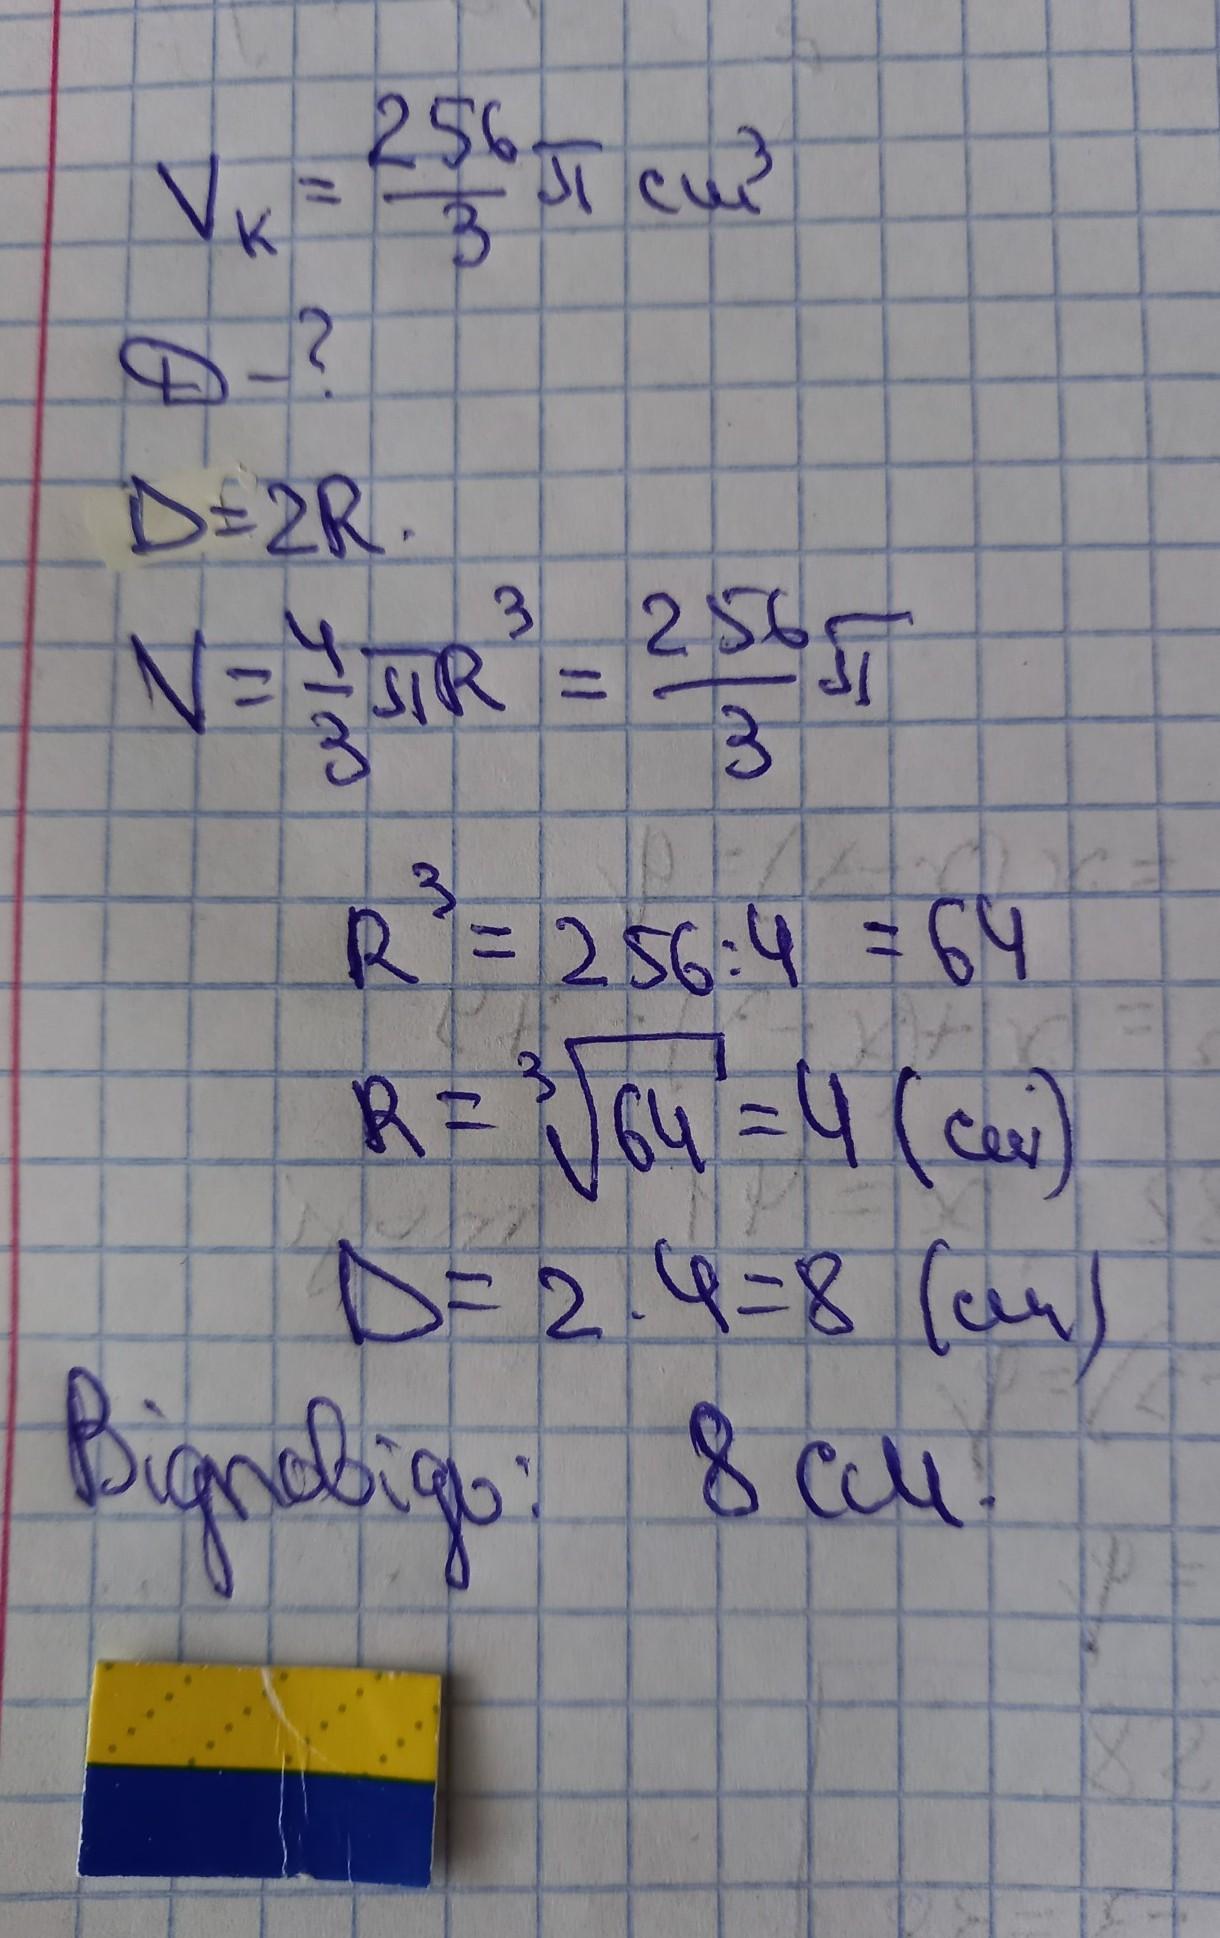 Vк = 256/3 π см³
D - ?
D = 2R.
V = 4/3 πR³ = 256/3 π
R³ = 256 : 4 = 64
R = ³√64 = 4 (см)
D = 2 · 4 = 8 (см)
Відповідь: 8 см.